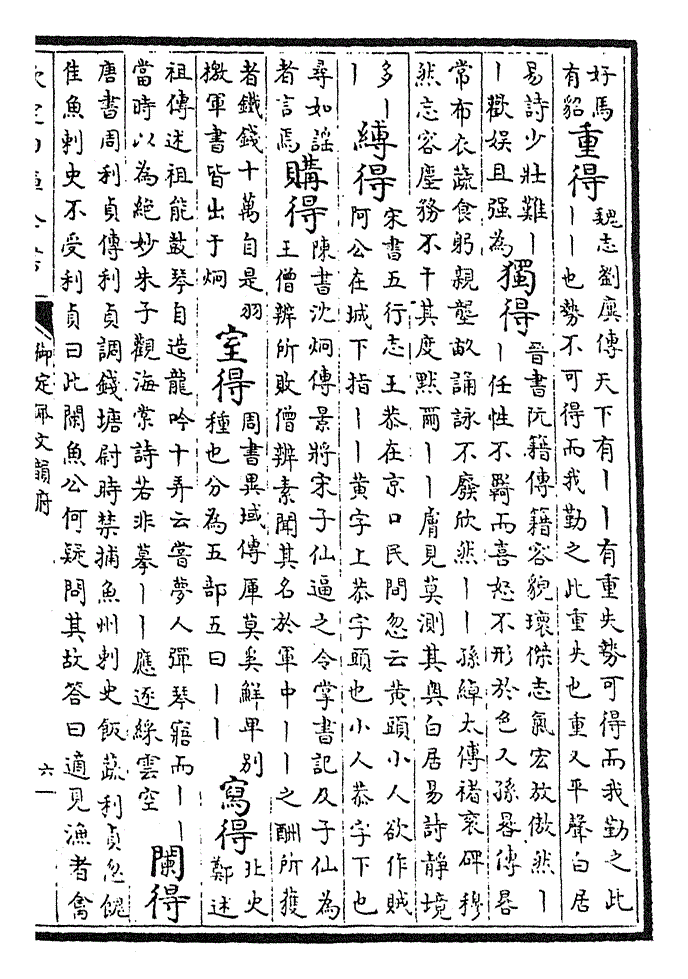 好馬
有貂
重得
魏志劉廙傳天下有丨丨有重失勢可得而我勤之此
丨丨也勢不可得而我勤之此重失也重又平聲白居
易詩少壯難丨
丨歡娱且强為
獨得
晉書阮籍傳籍容貌瓌傑志氣宏放傲然丨
丨任性不羇而喜怒不形於色又孫晷傳晷
常布衣蔬食躬親壟畝誦詠不廢欣然丨丨孫綽太傅褚裒碑穆
然忘容塵務不干其度默爾丨丨膚見莫測其奥白居易詩靜境
多丨
丨
縛得
宋書五行志王恭在京口民間忽云黄頭小人欲作賊
阿公在城下指丨丨黄字上恭字頭也小人恭字下也
尋如謡
者言焉
購得
陳書沈炯傳景將宋子仙逼之令掌書記及子仙為
王僧辨所敗僧辨素聞其名於軍中丨丨之酬所獲
者鐵錢十萬自是羽
檄軍書皆出于炯
室得
周書異域傳厙莫奚鮮卑别
種也分為五部五曰丨丨
寫得
北史
鄭述
祖傳述祖能鼓琴自造龍吟十弄云嘗夢人彈琴寤而丨丨
當時以為絶妙朱子觀海棠詩若非摹丨丨應逐綵雲空
闌得
唐書周利貞傳利貞調錢塘尉時禁捕魚州刺史飯蔬利貞忽餽
佳魚刺史不受利貞曰此闌魚公何疑問其故答曰適見漁者禽
御定佩文韻府
六一